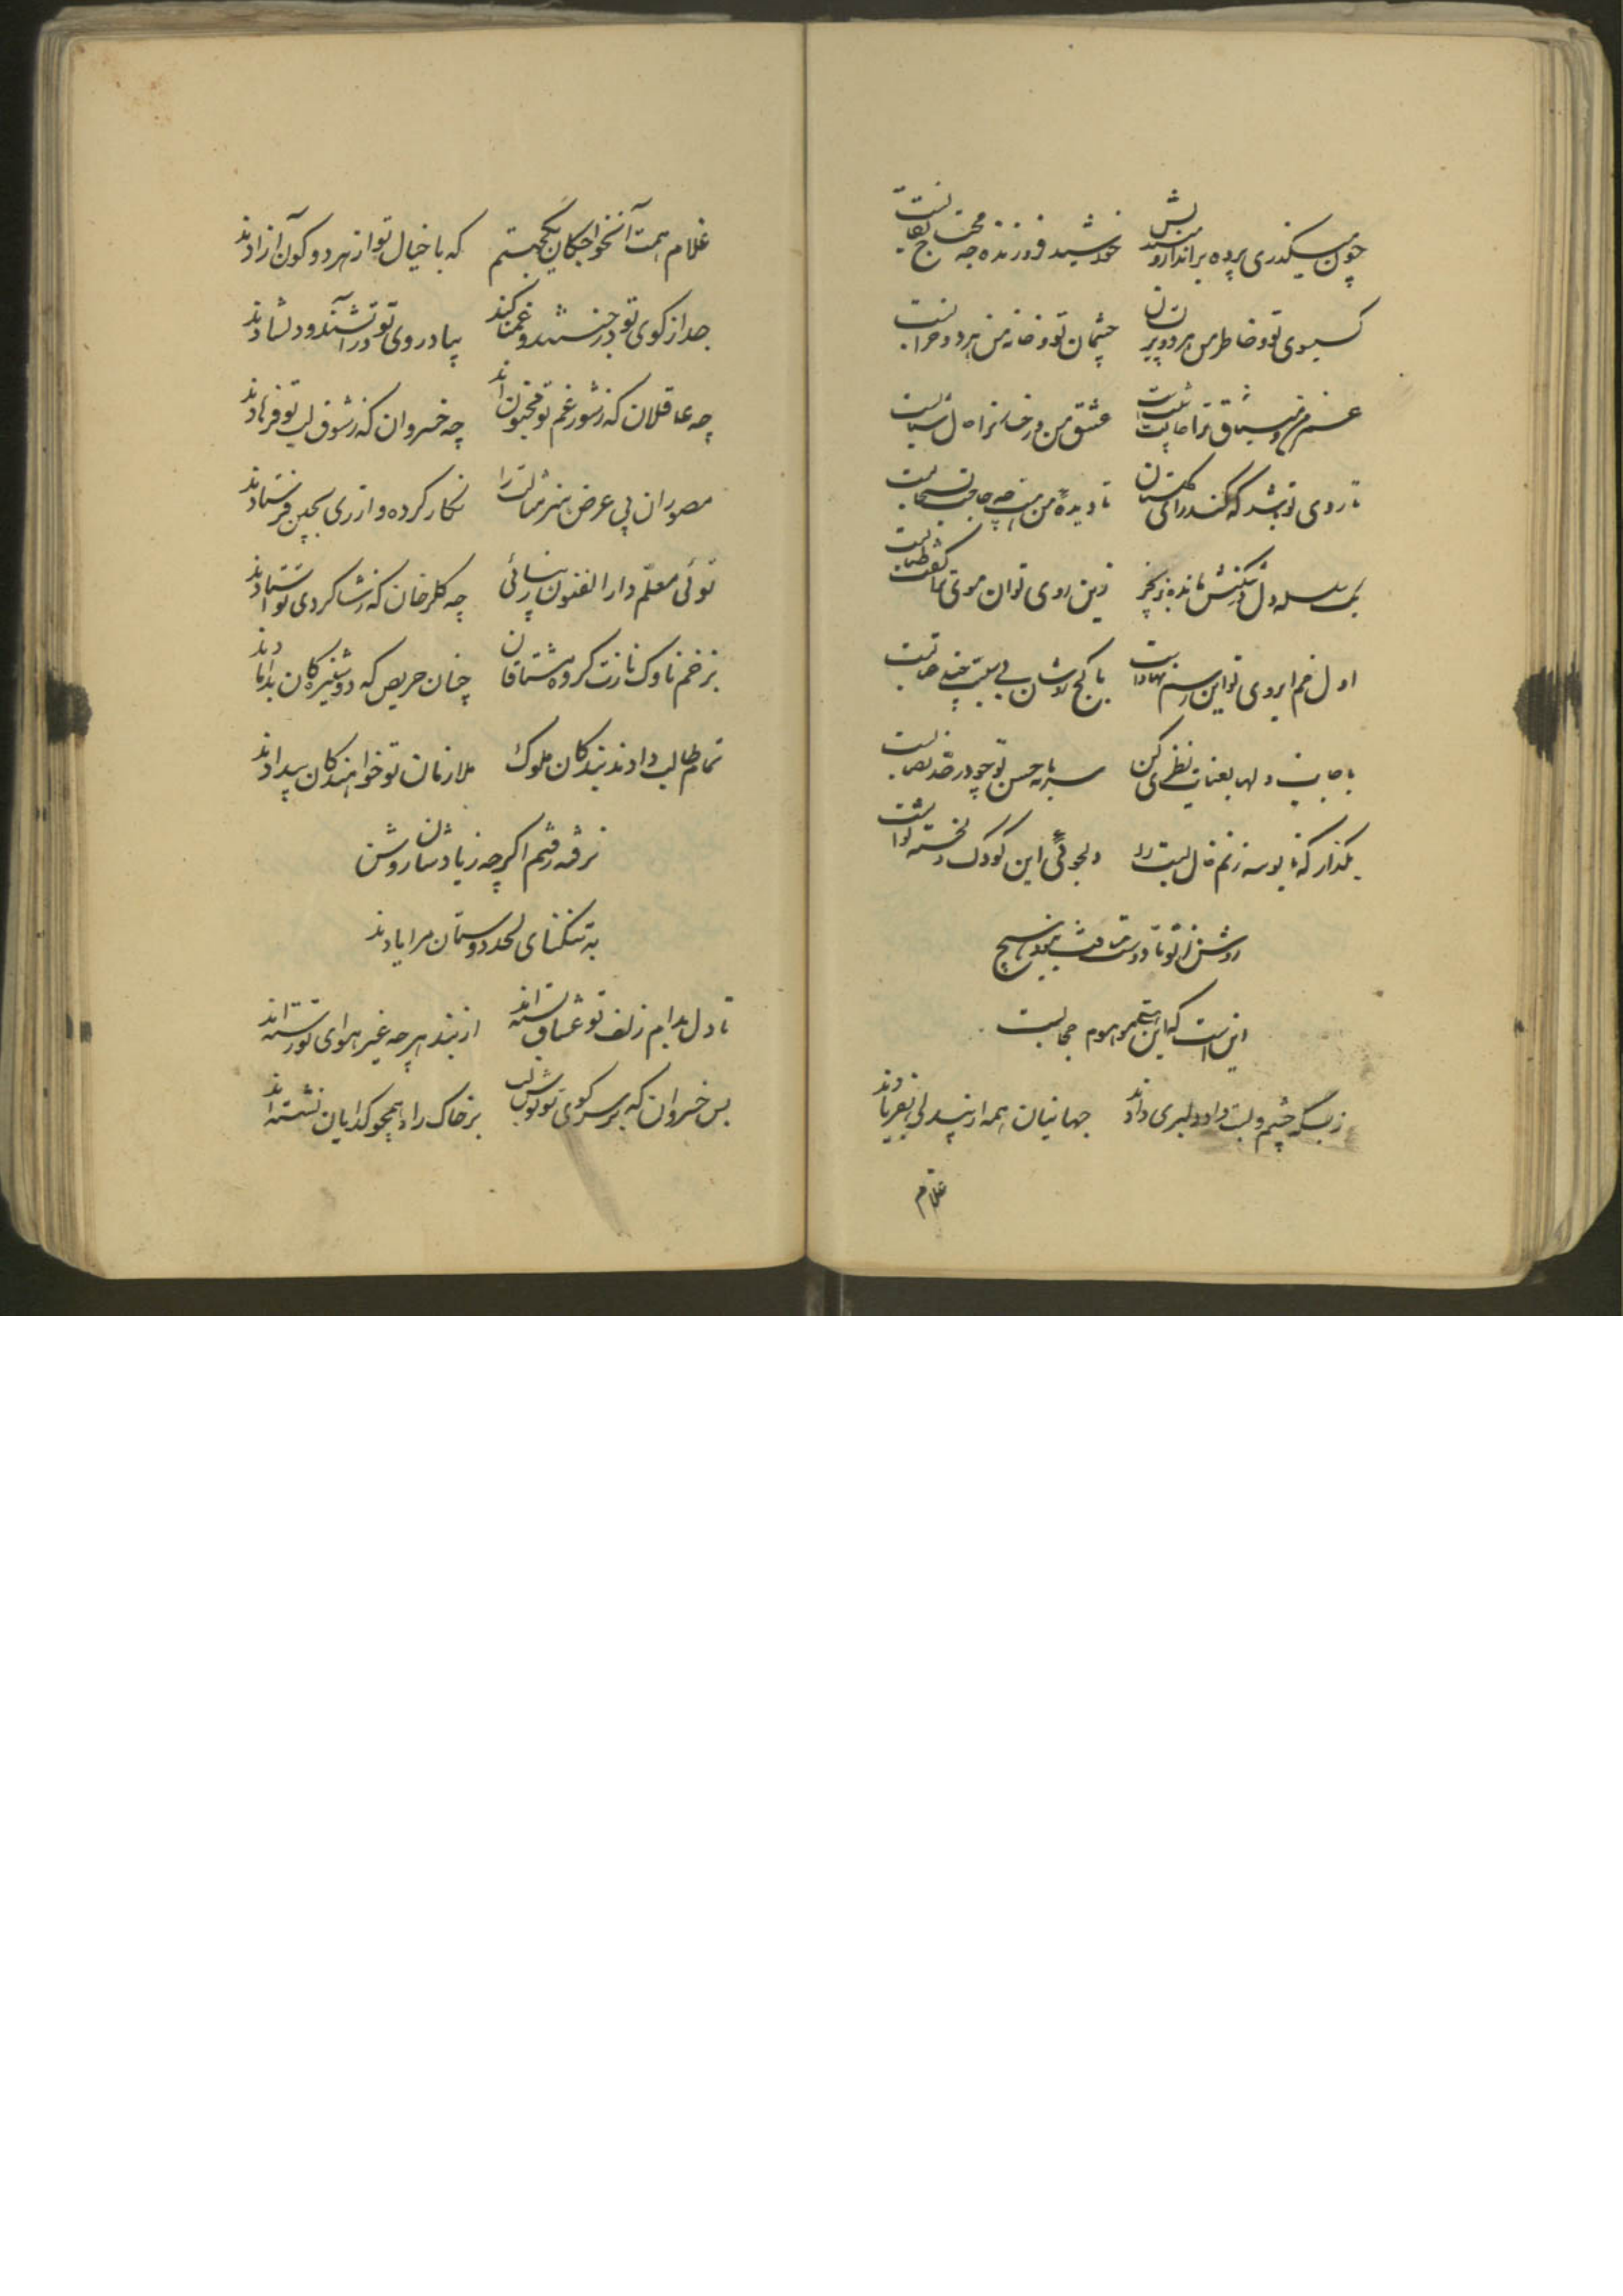 چون میگذری پرده برانداز و میندیش خورشید فروزنده چه محتاج نقابست
گیسوی تو و خاطر من هر دو پریشان چشمان تو و خانه من هر دو خرابست
عشق من و رخسار تو
تا روی تو باشد که کند رای گلستان تا دیده من هست چه حاجت بسحابست
یک سلسله دل در شکنش مانده بزنجیر زین روی توان موی تو
اول خم ابروی تو این رسم نهادست با کج روشان
با جانب دلها بعنایت نظری کن سرمایه حسن تو چو در حد نصابست
بگذار که تا بوسه زنم خال لبت را دلجوئی این کودک دلخسته ثوابست
روشن ز تو تا دوست
این است که این
ز بسکه چشم و لبت داد دلبری دادند جهانیان همه از بیدلی بفریادند
غلام
غلام همت آنخواجکان یکجهتم که با خیال تو از هر دو کون آزادند
جدا از کوی تو در جنتند و غمناکند بیاد روی تو در آتشند و دلشادند
چه عاقلان که ز شور غم تو مجنون‌اند چه خسروان که ز شوق لب تو فرهادند
مصوران پی عرض هنر مثالت را نکار کرده و از ری بچین فرستادند
توئی معلم دار الفنون زیبائی چه کلرخان که بشاکردی تو استادند
بزخم ناوک نازت کروه مشتاقان چنان حریص که دوشیزه‌کان بدامادند
تمام طالب دادند بندکان ملوک ملازمان تو خواهندکان بیدادند
نرفته رفتم اکرچه ز یادشان روشن
به تنکنای لحد دوستان مرا یادند
تا دل بدام زلف تو عشاق بسته‌اند از بند هر چه غیر هوای تو رسته‌اند
بس خسروان که بر سر کوی تو نوش لب بر خاک راه همچو کدایان نشسته‌اند